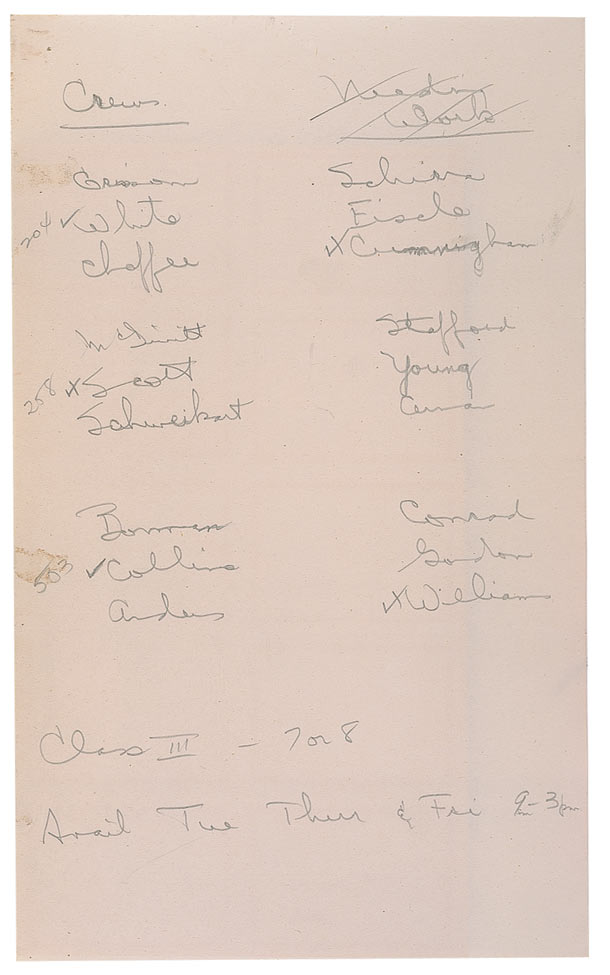 Crews
Grissom
204 ✓ White
Chaffee
McDivitt
258 ✓ Scott
Schweikart
Borman
503 ✓ Collins
Anders
Needing
Work
Schirra
Eisele
✓ Cunningham
Stafford
Young
Cernan
Conrad
Gordon
✓ Williams
Class III - 7 or 8
Avail Tue Thur & Fri 9am - 3pm